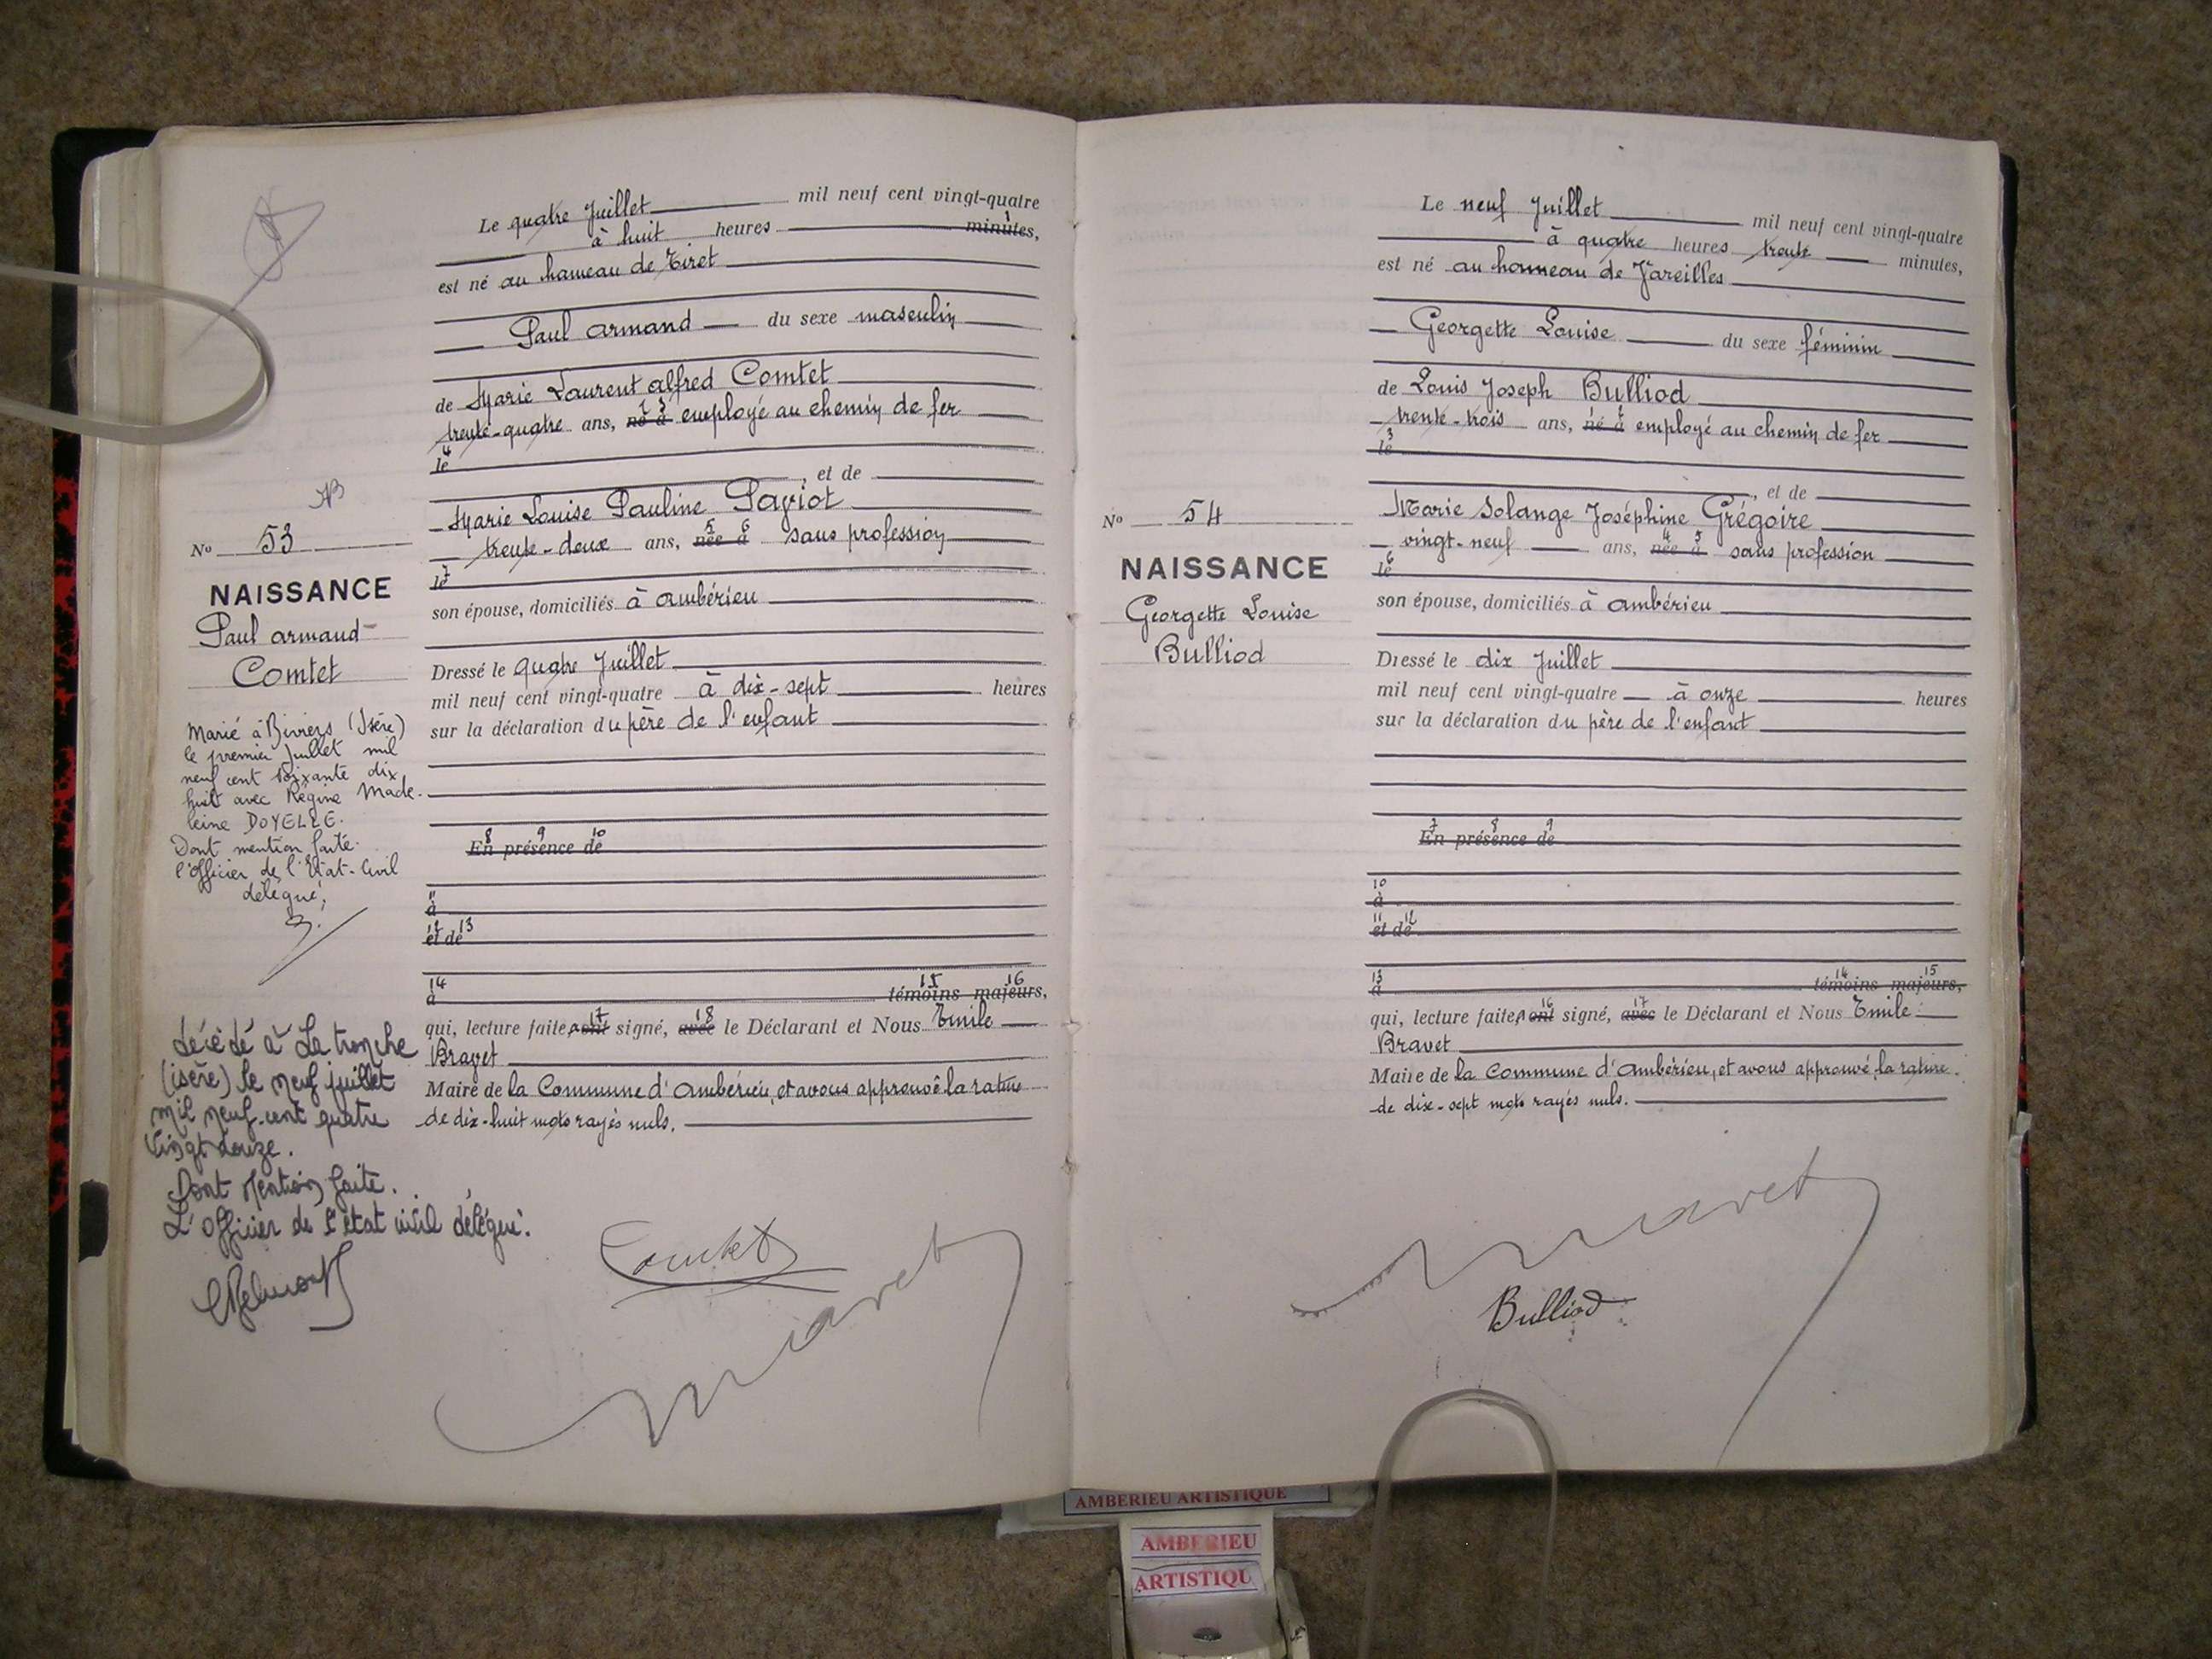 Le quatre Juillet mil neuf cent vingt-quatre
à huit heures minutes,
est né au hameau de Tiret
Paul Armand du sexe masculin
de Marie Laurent Alfred Comtet
trente-quatre ans, né à employé au chemin de fer
le
, et de
Marie Louise Pauline
trente-deux ans, née à sans profession
le
son épouse, domiciliés à Ambérieu
Dressé le quatre Juillet
mil neuf cent vingt-quatre à dix-sept heures
sur la déclaration du père de l'enfant
En présence de
à
et de
à témoins majeurs,
qui, lecture faite, a ont signé, avec le Déclarant et Nous Emile
Bravet
Maire de la Commune d'Ambérieu, et avons approuvé la rature
de dix-huit mots rayés nuls.
Comtet
Bravet
N° 53
NAISSANCE
Paul Armand
Comtet
Marié à Biviers (Isère)
le premier Juillet mil
neuf cent soixante dix
huit avec Régine Made-
leine DOYELLE.
Dont mention faite.
l'Officier de l'Etat-Civil
délégué,
décédé à La tronche
(isère) le neuf juillet
mil neuf cent quatre
vingt douze.
Dont Mention faite.
L'Officier de l'état civil délégué.
Le neuf Juillet mil neuf cent vingt-quatre
à quatre heures trente minutes,
est né au hameau de Vareilles
Georgette Louise du sexe féminin
de Louis Joseph Bulliod
trente-trois ans, né à employé au chemin de fer
le
, et de
Marie Solange Joséphine Grégoire
vingt-neuf ans, née à sans profession
le
son épouse, domiciliés à Ambérieu
Dressé le dix Juillet
mil neuf cent vingt-quatre à onze heures
sur la déclaration du père de l'enfant
En présence de
à
et de
à témoins majeurs,
qui, lecture faite, a ont signé, avec le Déclarant et Nous Emile
Bravet
Maire de la Commune d'Ambérieu, et avons approuvé la rature
de dix-sept mots rayés nuls.
Bravet
Bulliod
N° 54
NAISSANCE
Georgette Louise
Bulliod
AMBERIEU ARTISTIQUE
AMBERIEU
ARTISTIQU